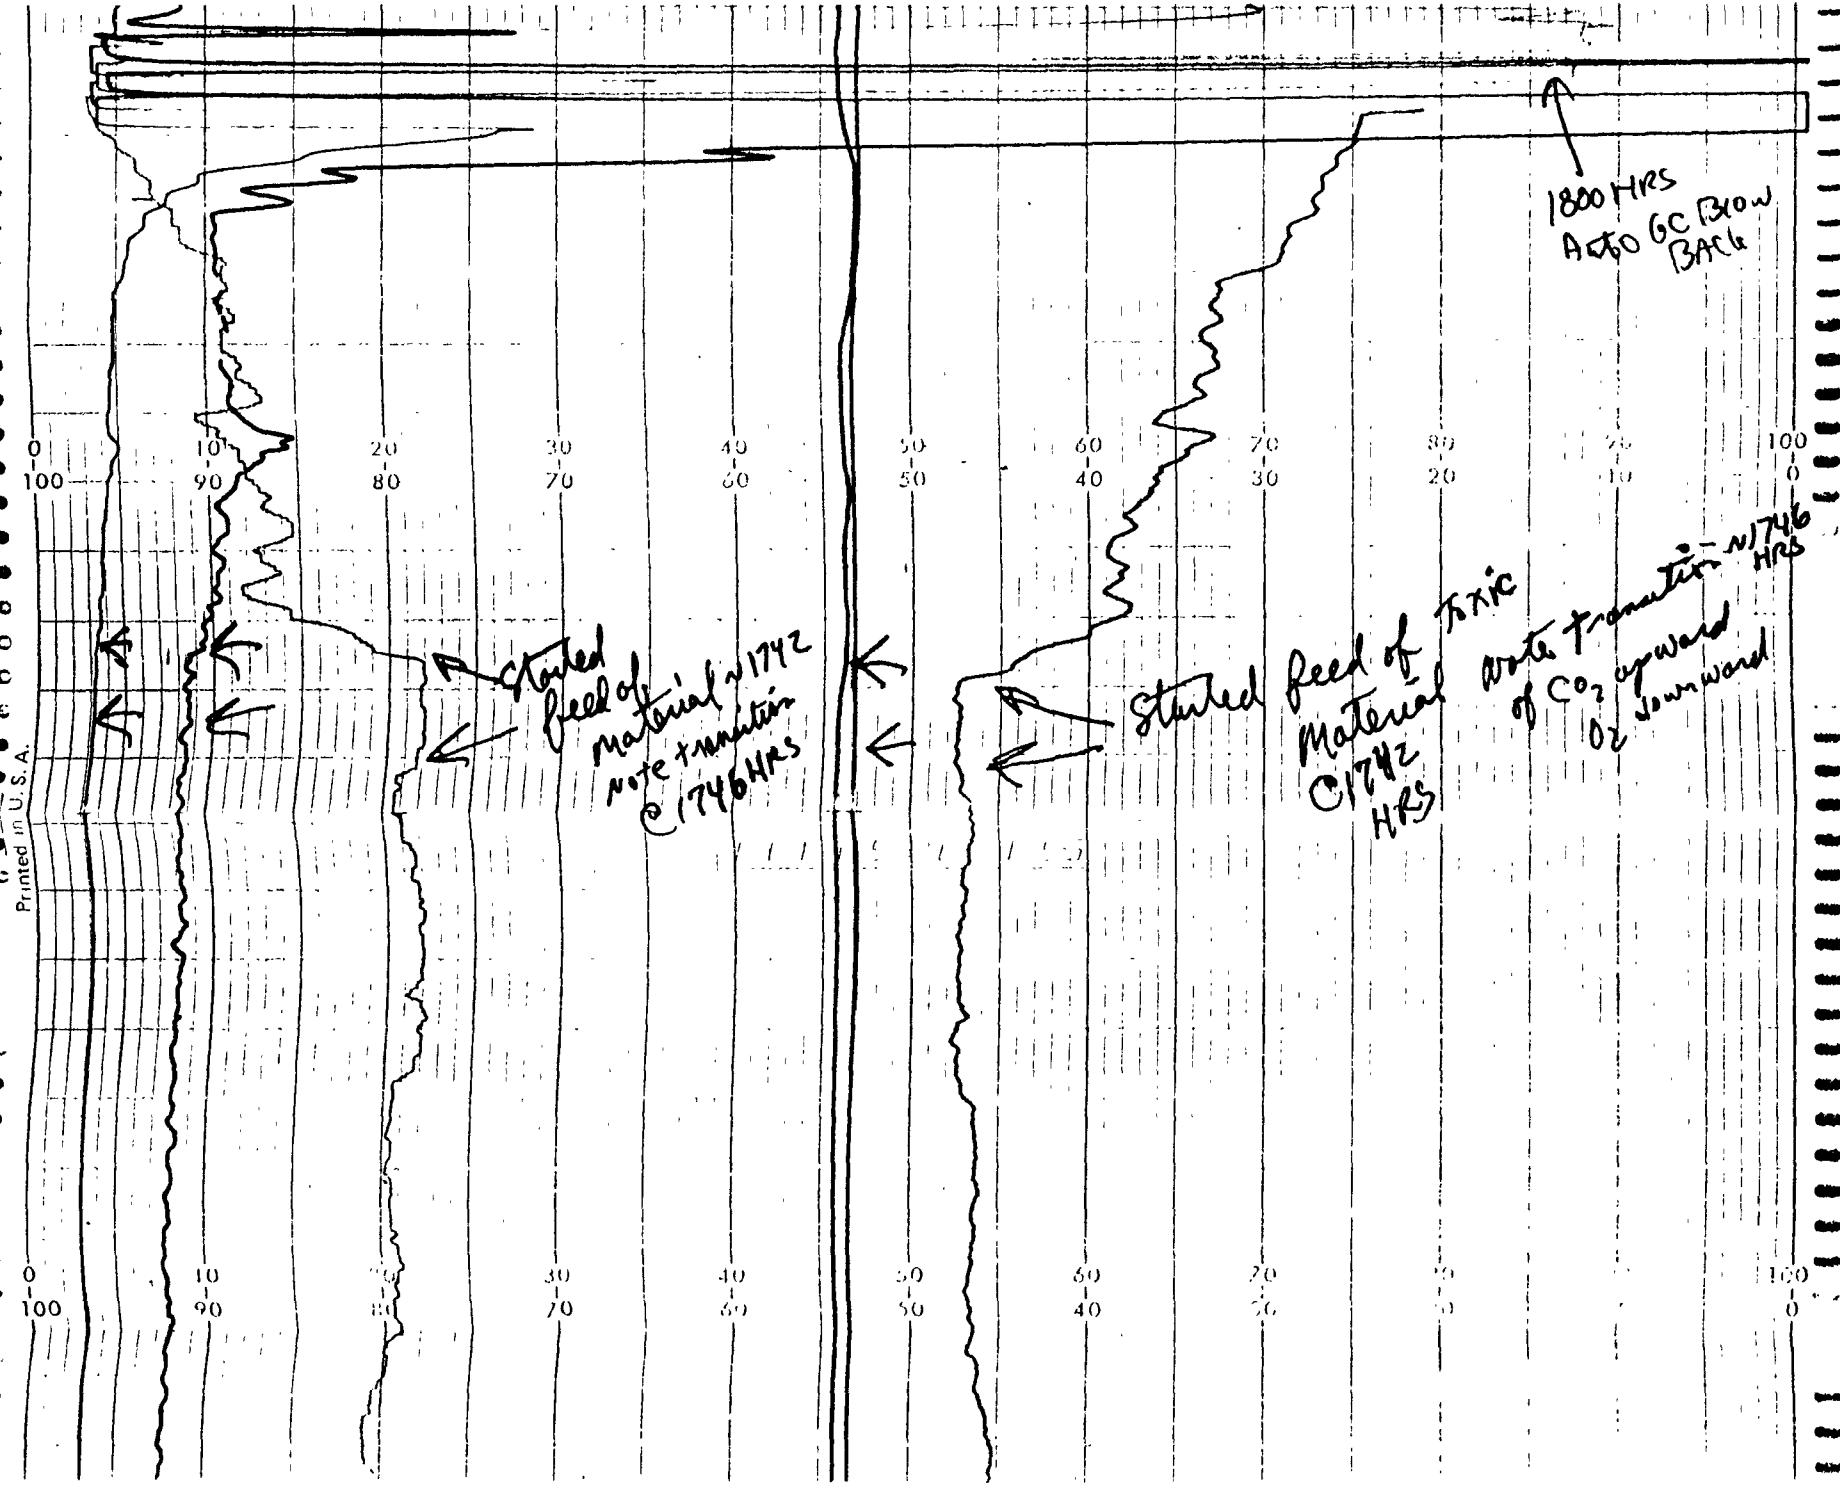 1800 HRS
Auto GC Blow
BACK
0 10 20 30 40 50 60 70 80 100
100 90 80 70 60 50 40 30 20 10 0
Started
feed of
material ~1742
Note transition
@ 1746 HRS
Started feed of toxic
Material
@1742
HRS
Note transition - ~1746
HRS
of CO2 upward
O2 downward
Printed in U.S.A.
0 10 30 40 50 60 70 100
100 90 80 70 60 50 40 0